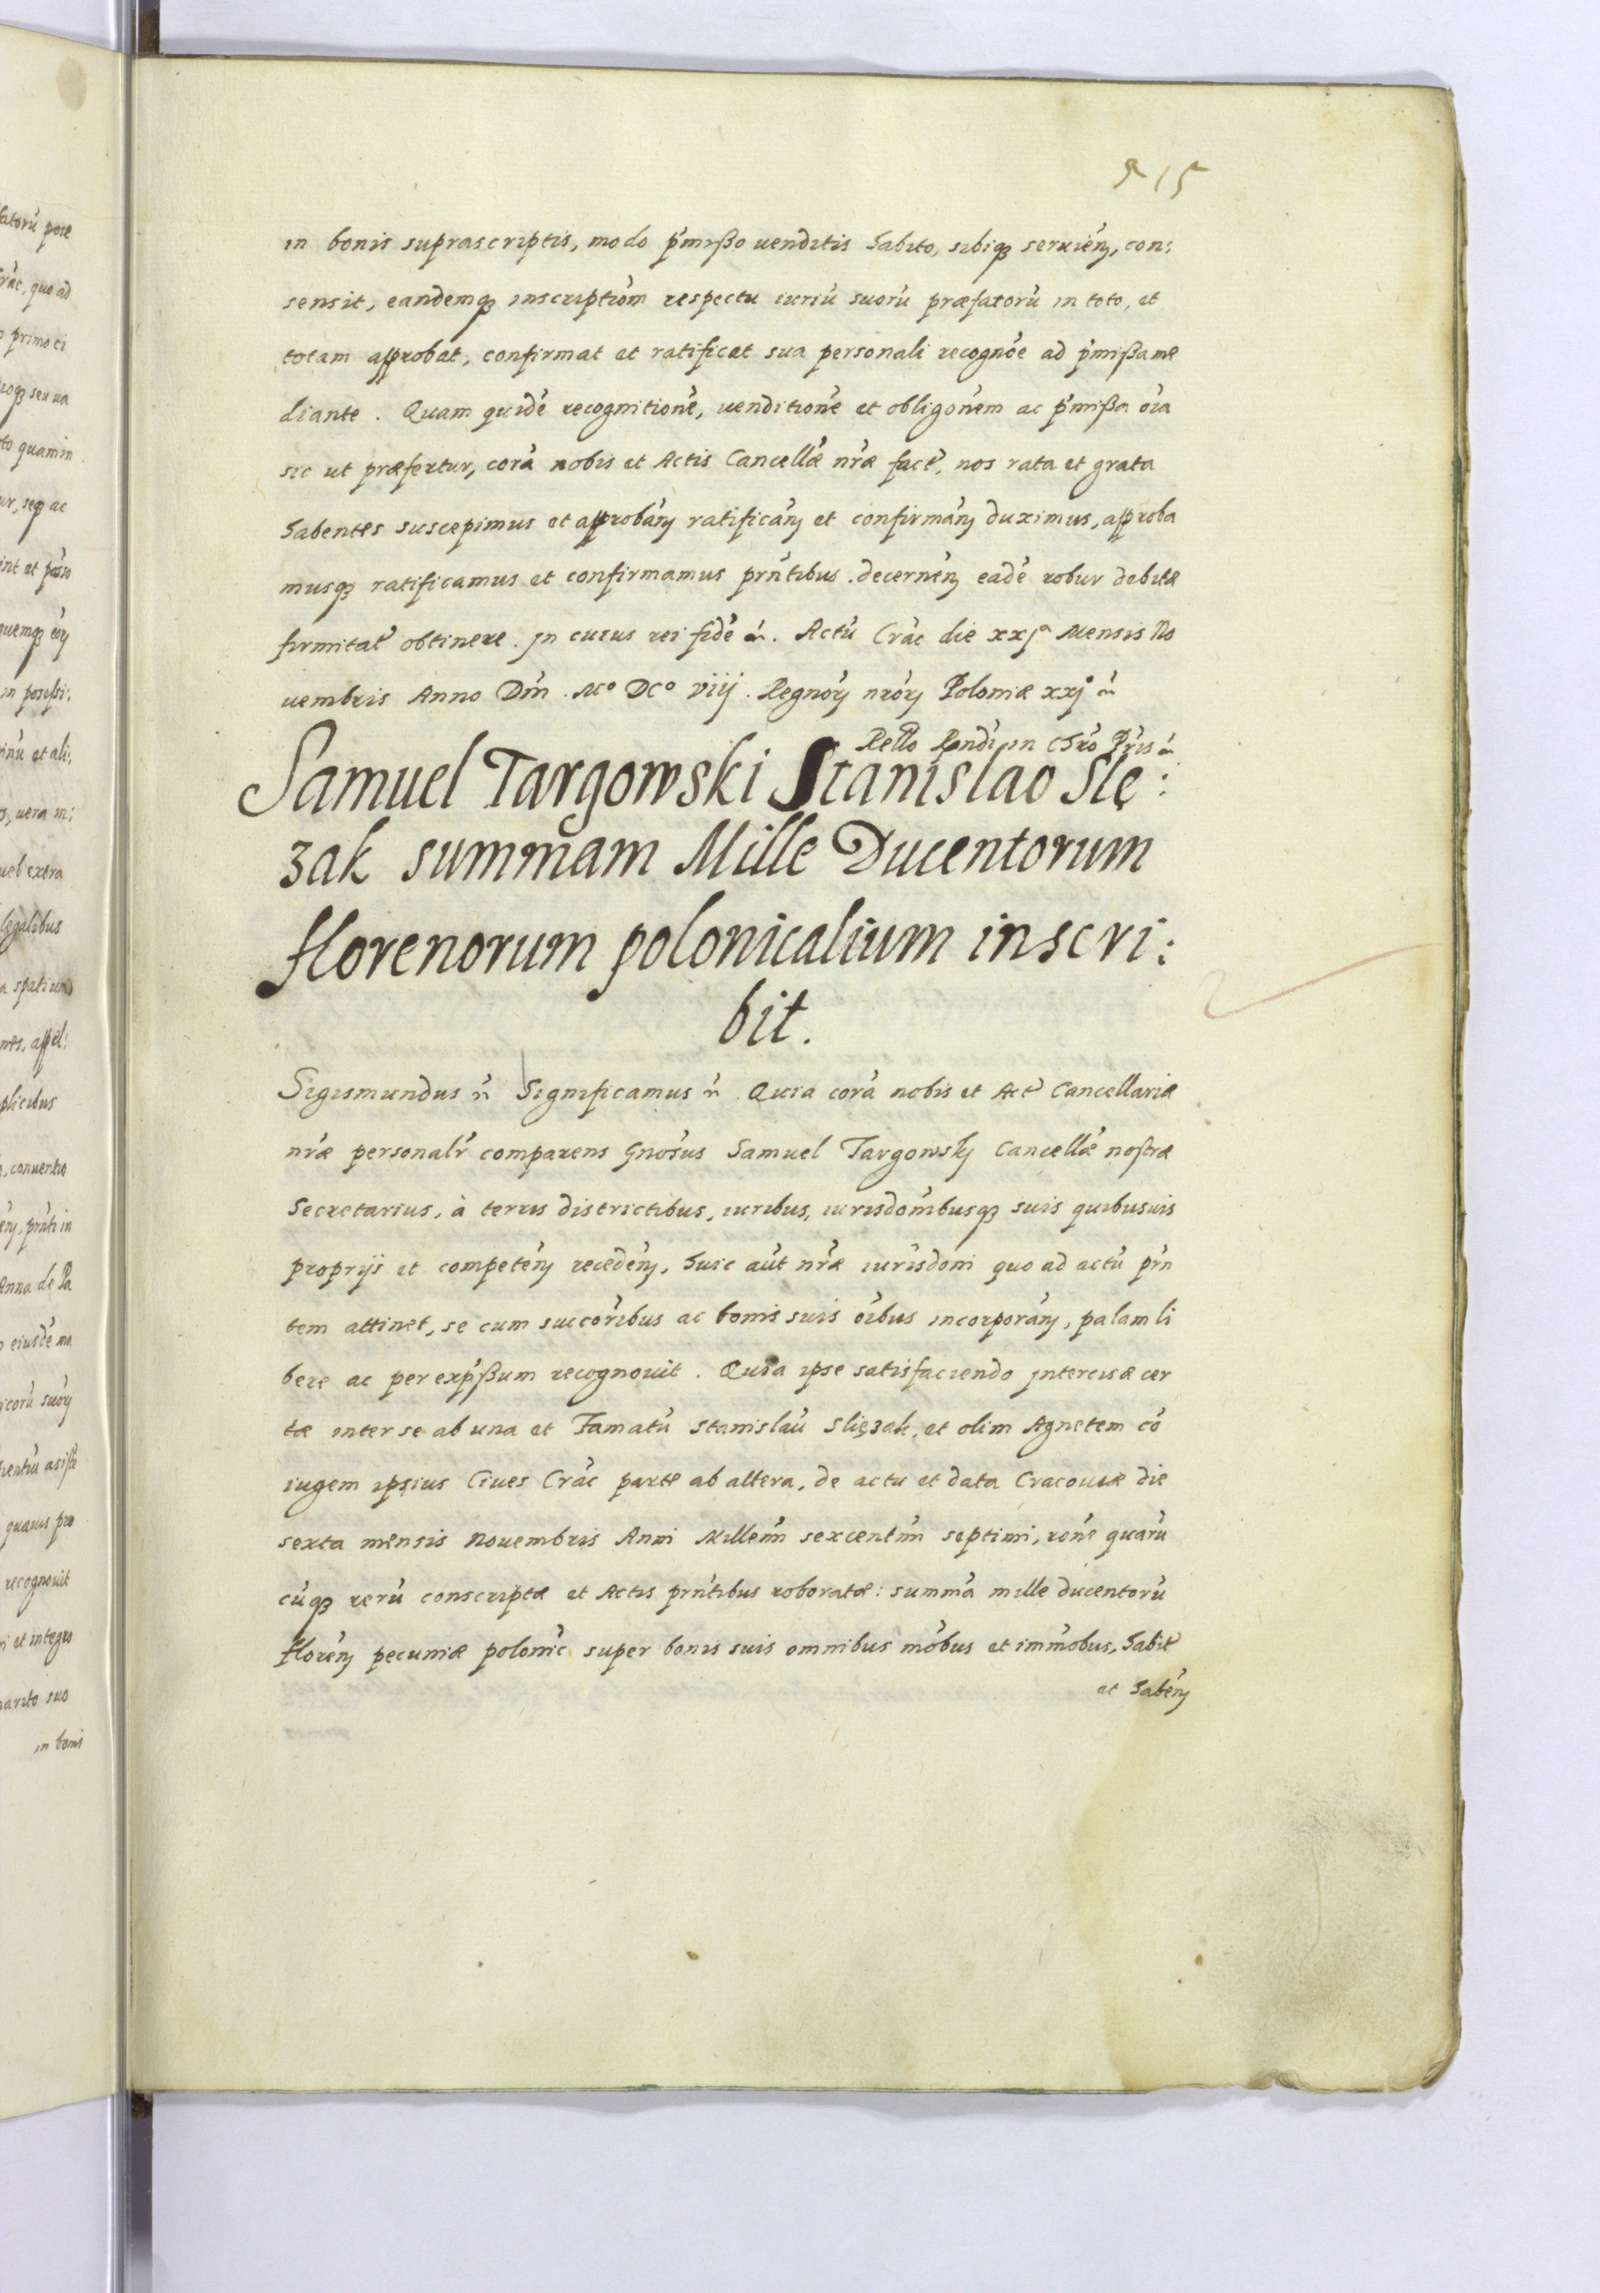 515
in bonis suprascriptis, modo p̃mißo uenditis habito, sibiq3 seruień, con:
sensit, eandemq3 inscriptiom̃ respectu iuriũ suorũ præfatorũ in toto, et
totam approbat, confirmat et ratificat sua personali recognõe ad p̃mißa me
diante. Quam quidẽ recognitionẽ, uenditionẽ et obligõnem ac p̃mißa oĩa
sic ut præfertur, corã nobis et Actis Cancellæ̃ nr̃æ fact', nos rata et grata
habentes suscepimus et approbań ratificań et confirmań duximus, approba
musq3 ratificamus et confirmamus prn̄tibus. decerneń eadẽ robur debitæ
firmitat' obtinere. In cuius rei fidẽ ẽt. Actũ Crac̃ die xxjª Mensis No
uembris Anno Dn̄i. Mº DCº viij. Regnoꝝ nr̃oꝝ Poloniæ xxjº ẽt
Samuel Targowski Stanislao Slę:
zak summam Mille Ducentorum
florenorum polonicalium inscri:
bit.
Sigismundus ẽt Significamus ẽt Quia corã nobis et Act' Cancellariæ
nr̃æ personalr̃ comparens Gnosus Samuel Targowskj Cancellæ̃ nostræ
Secretarius, à terris districtibus, iuribus, iurisdoñibusq3 suis quibusuis
proprijs et competeń recedeń, huic aũt nr̃æ iurisdoni quo ad actũ prn̄
tem attinet, se cum succorĩbus ac bonis suis oĩbus incorporań, palam li
bere ac per exp̃ßum recognouit. Quia ipse satisfaciendo intercisæ cer
tæ inter se ab una et Famatũ Stanislaũ Slięzak, et olim Agnetem cõ
iugem ipsius Ciues Crac̃ parte ab altera, de actu et data Cracouiæ die
sexta mensis Nouembris Anni Millem̃i sexcentm̃i septimi, ronẽ quarũ
cũq3 rerũ conscriptæ et Actis prn̄tibus roboratæ: summã mille ducentorũ
floreń pecuniæ polonic̃ super bonis suis omnibus mõbus et immõbus, habit'
et habeń